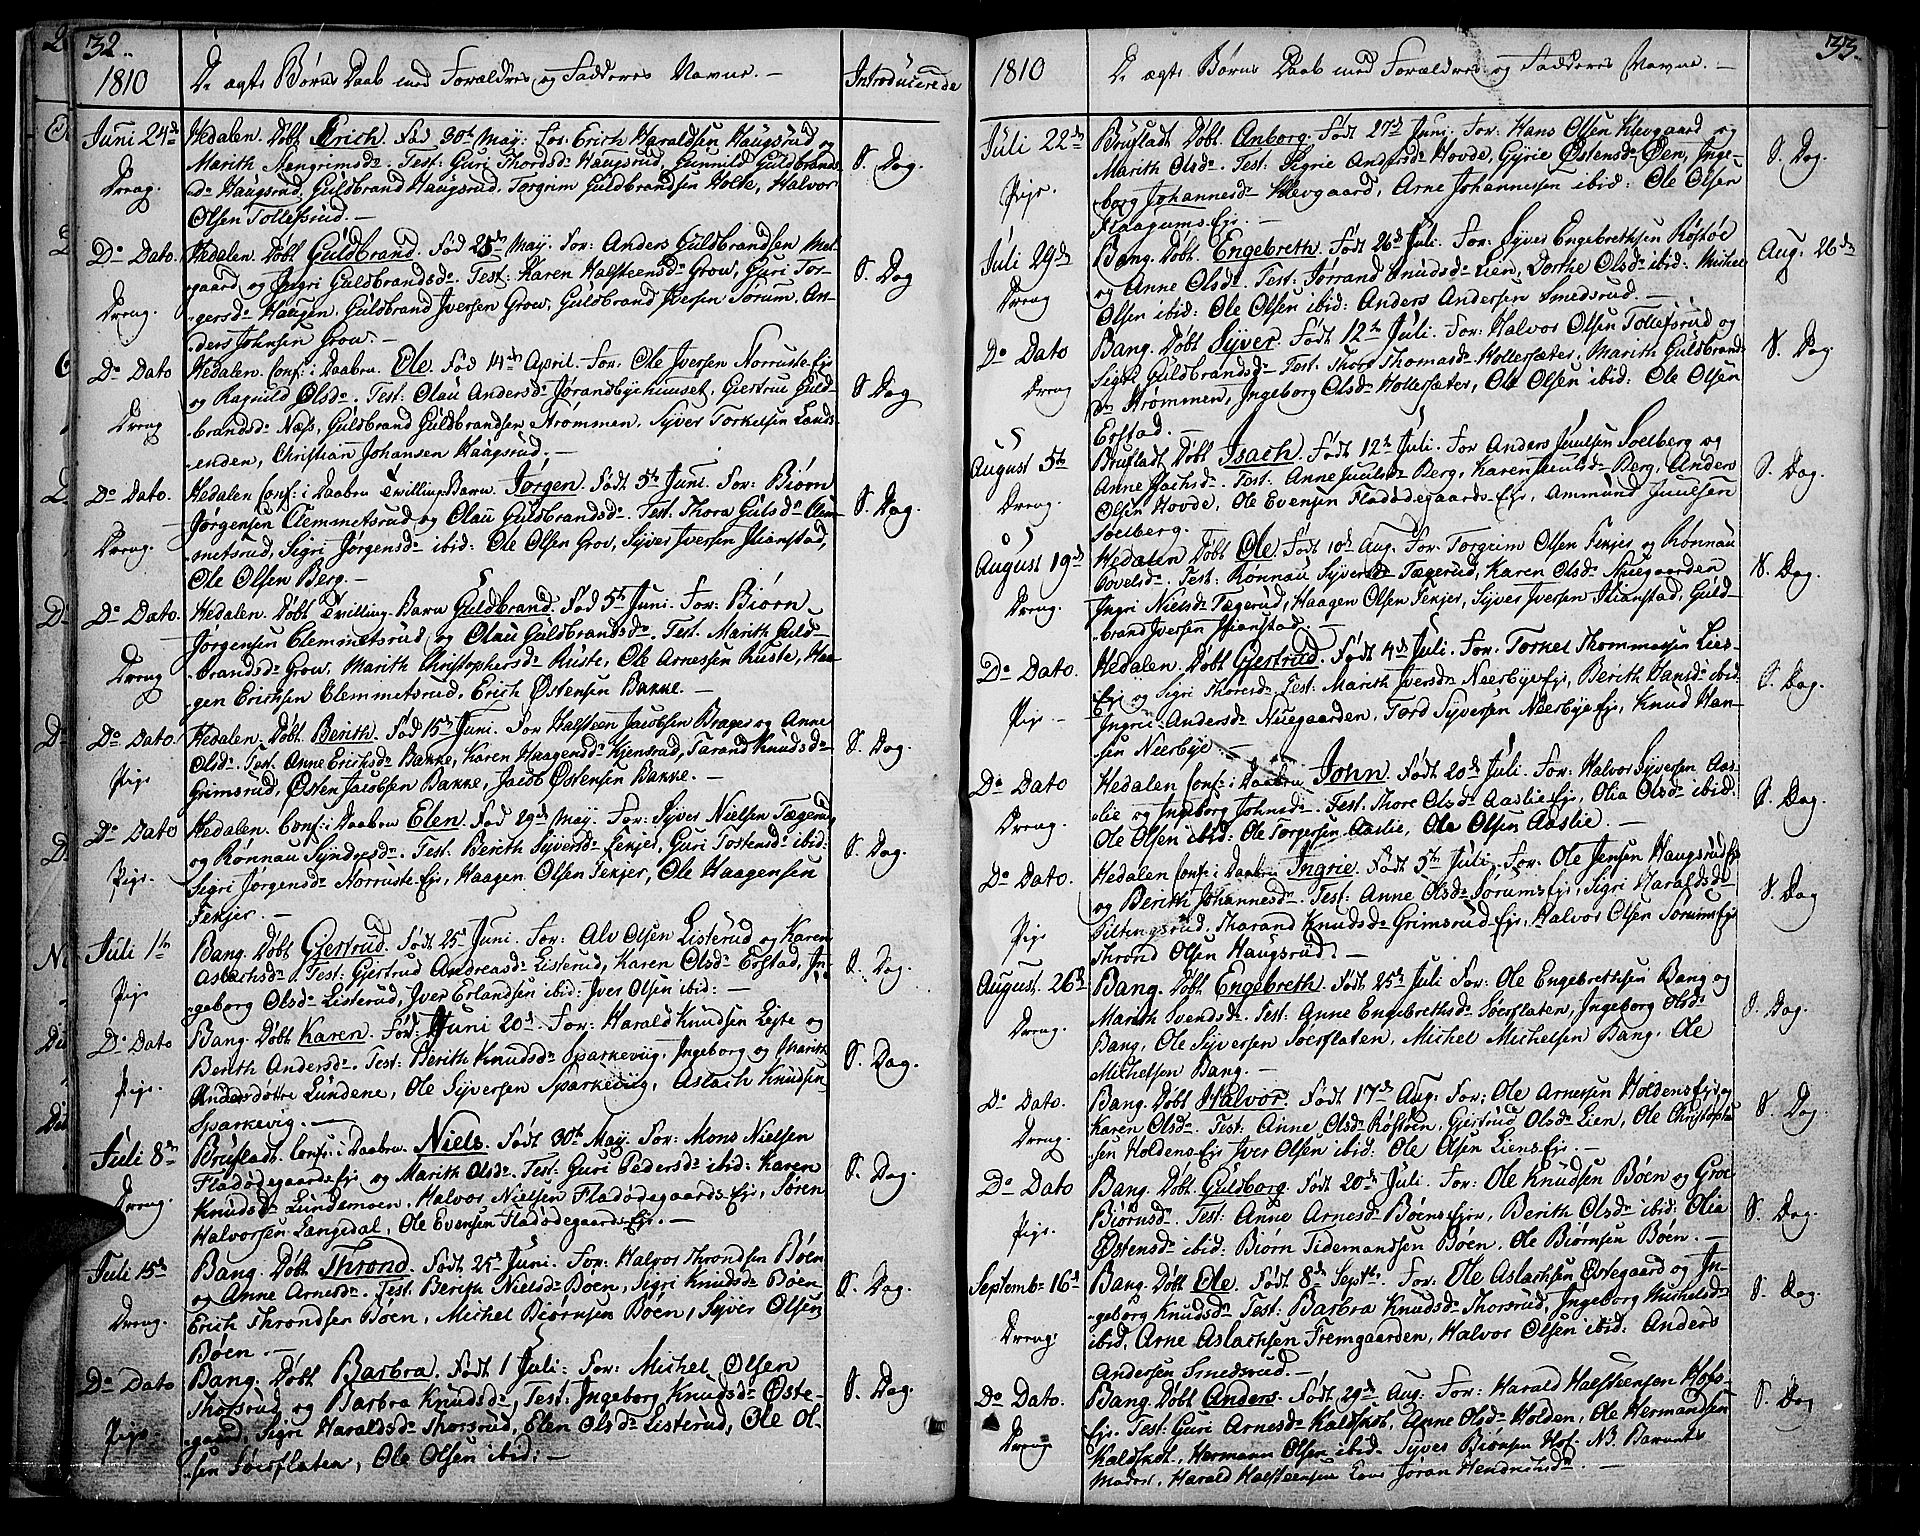 32.
1810
De ægte Børns Daab med Forældres og Fadderes Navne. —
Introducerede
Juni 24de
Dreng.
Hedalen. Døbt Erich. Fød 30te May. For: Erich Haraldsen Haugsrud og
Marith Mengrimsdr. Test: Guri Thordsdr Haugsrud, Gunnild Guldbrands-
dr Haugsrud, Guldbrand Haugsrud, Torgrim Guldbrandsen Holte, Halvor
Olsen Tollefsrud. —
S. Dag.
Do Dato.
Dreng.
Hedalen. Døbt Guldbrand. Fød 25de May. For: Anders Guldbrandsen
gaard og Ingri Guldbrandsdr. Test: Karen Halsteensdr Grow, Guri Tor-
gersdr Haugen, Guldbrand Iversen Grow, Guldbrand Iversen Sorum, An-
ders Johnsen Grow. —
S. Dag
Do Dato
Dreng
Hedalen. Conf: i Daaben. Ole. Fød 14de April. For: Ole Iversen Norruste Eje
og Ragnild Olsdr. Test: Olau Andersdr Jørandbyehuuset, Giertrue Guld-
brandsdr Næss, Guldbrand Guldbrandsen Strømmen, Syver Torkelsen Lands-
enden, Christian Johansen Haugsrud. —
S Dag
Do Dato.
Dreng.
Hedalen Conf: i Daaben Tvilling Barn. Jørgen. Født 5te Juni. For: Biørn
Jørgensen Clemmetsrud og Olau Guldbrandsdr. Test: Thora Gulsdr Clem-
metsrud, Sigri Jørgensdr ibid: Ole Olsen Grov, Syver Iversen Jlianstad,
Ole Olsen Berg. —
S Dag.
Do Dato.
Dreng
Hedalen. Døbt Tvilling Barn Guldbrand. Fød 5te Juni. For: Biørn
Jørgensen Clemmetsrud og Olau Guldbrandsdr. Test. Marith Guld-
brandsdr Grow, Marith Christophersdr Ruste, Ole Arnessen Ruste, Haa-
gen Erichsen Clemmetsrud, Erich Østensen Bakke. —
Do Dato.
Pige
Hedalen. Døbt Berith. Fød 15de Juni. For Halsteen Jacobsen Brager og Anne
Olsdr. Test. Anne Erichsdr Bakke, Karen Haagensdr Kjensrud, Tarand Knudsdr
Grimsrud, Østen Jacobsen Bakke, Jacob Østensen Bakke. —
S. Dag.
Do Dato
Pige.
Hedalen. Conf: i Daaben Elen. Fød 29de May. For: Syver Nielsen Tægerud
og Rønnau Syndresdr. Test: Berith Syversdr Fekjer, Guri Tostensdr ibid:
Sigri Jørgensdr Norruste Eje, Haagen Olsen Fekjer, Ole Haagensen
Fekjer. —
S. Dag.
Juli 1te
Pige
Bang. Døbt Gjertrud. Født 25de Juni. For: Alv Olsen Listerud og Karen
Aslachsdr. Test: Gjertrud Andreasdr Listerud, Karen Olsdr Erstad, In-
geborg Olsdr Listerud, Iver Erlandsen ibid: Iver Olsen ibid: —
S. Dag.
Do Dato
Pige.
Bang. Døbt Karen. Fød: Juni 20de. For: Harald Knudsen Leyte og
Berith Andersdr. Test: Berith Knudsdr Sparkeviig, Ingeborg og Marith
Andersdøttre Lundene, Ole Syversen Sparkeviig, Aslach Knudsen
Sparkevig. —
S. Dag.
Juli 8de
Dreng.
Brufladt. Conf: i Daaben. Niels. Født 30te May. For: Mons Nielsen
Fladødegaards Eje og Marith Olsdr. Test: Guri Pedersdr ibid: Karen
Knudsdr Lundemoen, Halvor Nielsen Fladødegaards Eje, Søren
Halvorsen Langedal, Ole Evensen Fladødegaards Eje. —
S. Dag
Juli 15de
Dreng.
Bang. Døbt Thrond. Født 25de Juni. For: Halvor Throndsen Bøen
og Anne Arnesdr. Test: Berith Nielsdr Bøen, Sigri Knudsdr Bøen
Erich Throndsen Bøen, Michel Biørnsen Bøen, Syver Olsen
Bøen. —
S. Dag.
Do Dato
Pige.
Bang. Døbt Barbra. Født 1 Juli. For: Michel Olsen
Thorsrud og Barbra Knudsdr, Test: Ingeborg Knudsdr Øste-
gaard, Sigri Haraldsdr Thorsrud, Elen Olsdr Listerud, Ole Ol-
sen Søerflaten, Ole Olsen ibid: —
S. Dag.
33.
1810
De ægte Børns Daab med Forældres og Fadderes Navne. —
Juli 22de
Pige.
Brufladt Døbt Anborg. Født 27de Juni. For: Hans Olsen Klevgaard og
Marith Olsdr. Test: Sigrie Andersdr Hovde, Gyrie Østensdr Øen, Inge-
borg Johannesdr Klevgaard, Arne Johannesen ibid: Ole Olsen
Flaagums Eje. —
S. Dag.
Juli 29de
Dreng
Bang. Døbt Engebreth. Født 26de Juli. For: Syver Engebrethsen Røstøe
og Anne Olsdr. Test: Jorrand Knudsdr Lien, Dorthe Olsdr ibid: Michel
Olsen ibid: Ole Olsen ibid: Anders Andersen Smedsrud. —
Aug: 26de
Do Dato
Dreng
Bang. Døbt Syver. Født 12te Juli. For: Halvor Olsen Tollefsrud og
Sigri Guldbrandsdr. Test: Thore Thomasdr Hollersæter, Marith Guldbrands-
dr Strømmen, Ingeborg Olsdr Hollersæter, Ole Olsen ibid: Ole Olsen
Erstad. —
S. Dag.
August 5te
Dreng.
Brufladt Døbt Isach. Født 12te Juli. For Anders Juulsen Soelberg og
Anne Isachsdr. Test: Anne Juulsdr Berg, Karen Juulsdr Berg, Anders
Olsen Hovde, Ole Evensen Fladødegaards Eje, Ammund Juulsen
Soelberg.
S. Dag.
August 19de
Dreng.
Hedalen Døbt Ole. Født 10de Aug. For: Torgrim Olsen Fekjer og Rønnau
Bovelsdr. Test: Rønnau Syversdr Tægerud, Karen Olsdr Nuegaarden
Ingri Nielsdr Tægerud, Haagen Olsen Fekjer, Syver Iversen Jlianstad, Guld-
brand Iversen Jlianstad. —
S. Dag.
Do Dato.
Pige. —
Hedalen. Døbt Gjertrud. Født 4de Juli. For: Torkel Thommasen Lies-
Eje og Sigri Thoresdr. Test: Marith Iversdr Neerbye Eje, Berith Hansdr ibid
Ingrie Andersdr Nuegaarden, Tord Syversen Neerbye Eje, Knud Han-
sen Neerbye. —
S. Dag.
Do Dato
Dreng.
Hedalen Conf: i Daaben John. Født 20de Juli. For: Halvor Syversen Aas-
lie og Ingeborg Johnsdr. Test: Thore Olsdr Aaslie Eje, Olia Olsdr ibid.
Ole Olsen ibid: Ole Torgersen Aaslie, Ole Olsen Aaslie. —
S. Dag.
Do Dato.
Pige
Hedalen Conf: i Daaben Ingrie. Født 5te Juli. For: Ole Jensen Haugsrud Eje
og Berith Johannesdr. Test: Anne Olsdr Sorums Eje, Sigri Haraldsdr
Siltingsrud, Tharand Knudsdr Grimsrud Eje, Halvor Olsen Sorums Eje
Thrond Olsen Haugsrud. —
S. Dag
August. 26de
Dreng.
Bang. Døbt Engebreth. Født 25de Juli For: Ole Engebrethsen Bang og
Marith Svendsdr. Test: Anne Engebrethsdr Søerflaten, Ingeborg Olsdr
Bang, Ole Syversen Søerflaten, Michel Michelsen Bang. Ole
Michelsen Bang. —
S. Dag.
Do Dato.
Dreng.
Bang. Døbt Halvor. Født 17de Aug: For: Ole Arnesen Holdens Eje og
Karen Olsdr. Test: Anne Olsdr Røstøen, Gjertrud Olsdr Lien, Ole Christophe
sen Holdens Eje Iver Olsen ibid: Ole Olsen Liens Eje. —
S. Dag.
Do Dato
Pige.
Bang. Døbt. Gulborg. Født 20de Juli. For: Ole Knudsen Bøen og Groe
Biørnsdr. Test: Anne Arnesdr Bøens Eje, Berith Olsdr ibid: Olia
Østensdr ibid: Biørn Tidemandsen Bøen, Ole Biørnsen Bøen. —
S. Dag.
Septembr 16de
Dreng.
Bang. Døbt Ole. Født 8de Septbr. For: Ole Aslachsen Østegaard og In-
geborg Knudsdr. Test: Barbra Knudsdr Thorsrud, Ingeborg Michelsdr
ibid, Arne Aslachsen Fremgaarden, Halvor Olsen ibid: Anders
Andersen Smedsrud. —
S. Dag.
Do Dato.
Dreng
Bang. Døbt Anders. Født 29de Aug. For: Harald Halsteensen Hofs-
Eje. Test: Guri Arnesdr Kaldskdt, Anne Olsdr Holden, Ole Hermandsen
Kaldskdt, Hermann Olsen ibid: Syver Biørnsen Hof. NB. Barnets
Moder, Harald Halsteensens Kone Jøran Hendrichsdr. —
S. Dag